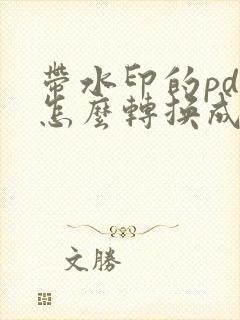 带水印的pd
怎麼轉換成
文勝